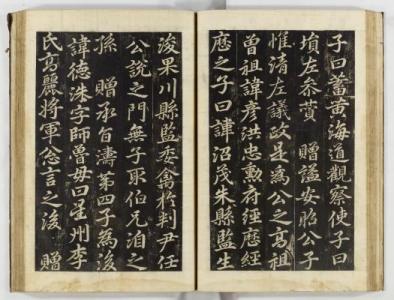 子曰蓄黃海道觀察使子曰
塤左叅贊 贈謚安昭公子
惟清左議政是為公之高祖
曾祖諱彦洪忠勳府經應經
應之子曰諱沼茂朱縣監生
浚果川縣監委禽於判尹任
公說之門無子取伯兄洎之
孫 贈承旨濤第四子為浚
諱德洙字師魯母曰星州李
氏高麗將軍忩言之浚 贈